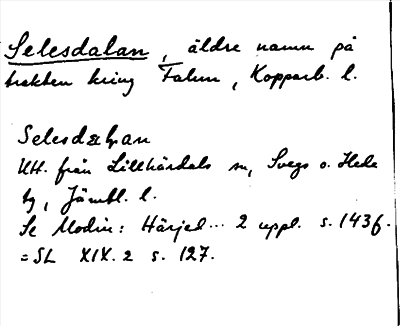 Selesdalan, äldre namn på
trakten kring Falun, Kopparb. l.
Selesdalan
Utt. från Lillhärdals sn, Svegs o. Hede
tg, Jämtl. l.
Se Modin: Härjed... 2 uppl. s. 143f.
= SL XIX. 2 s. 127.